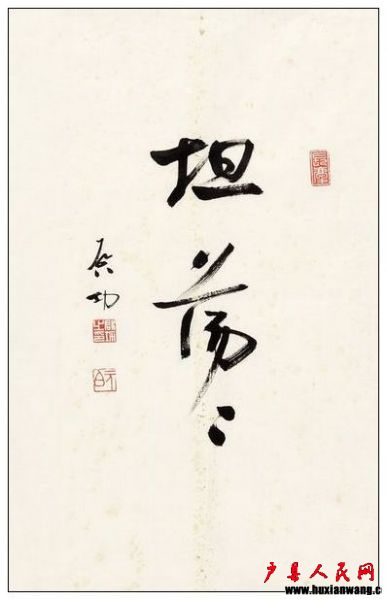 坦
荡
〻
启功
元白
户县人民网
www.huxianwang.c